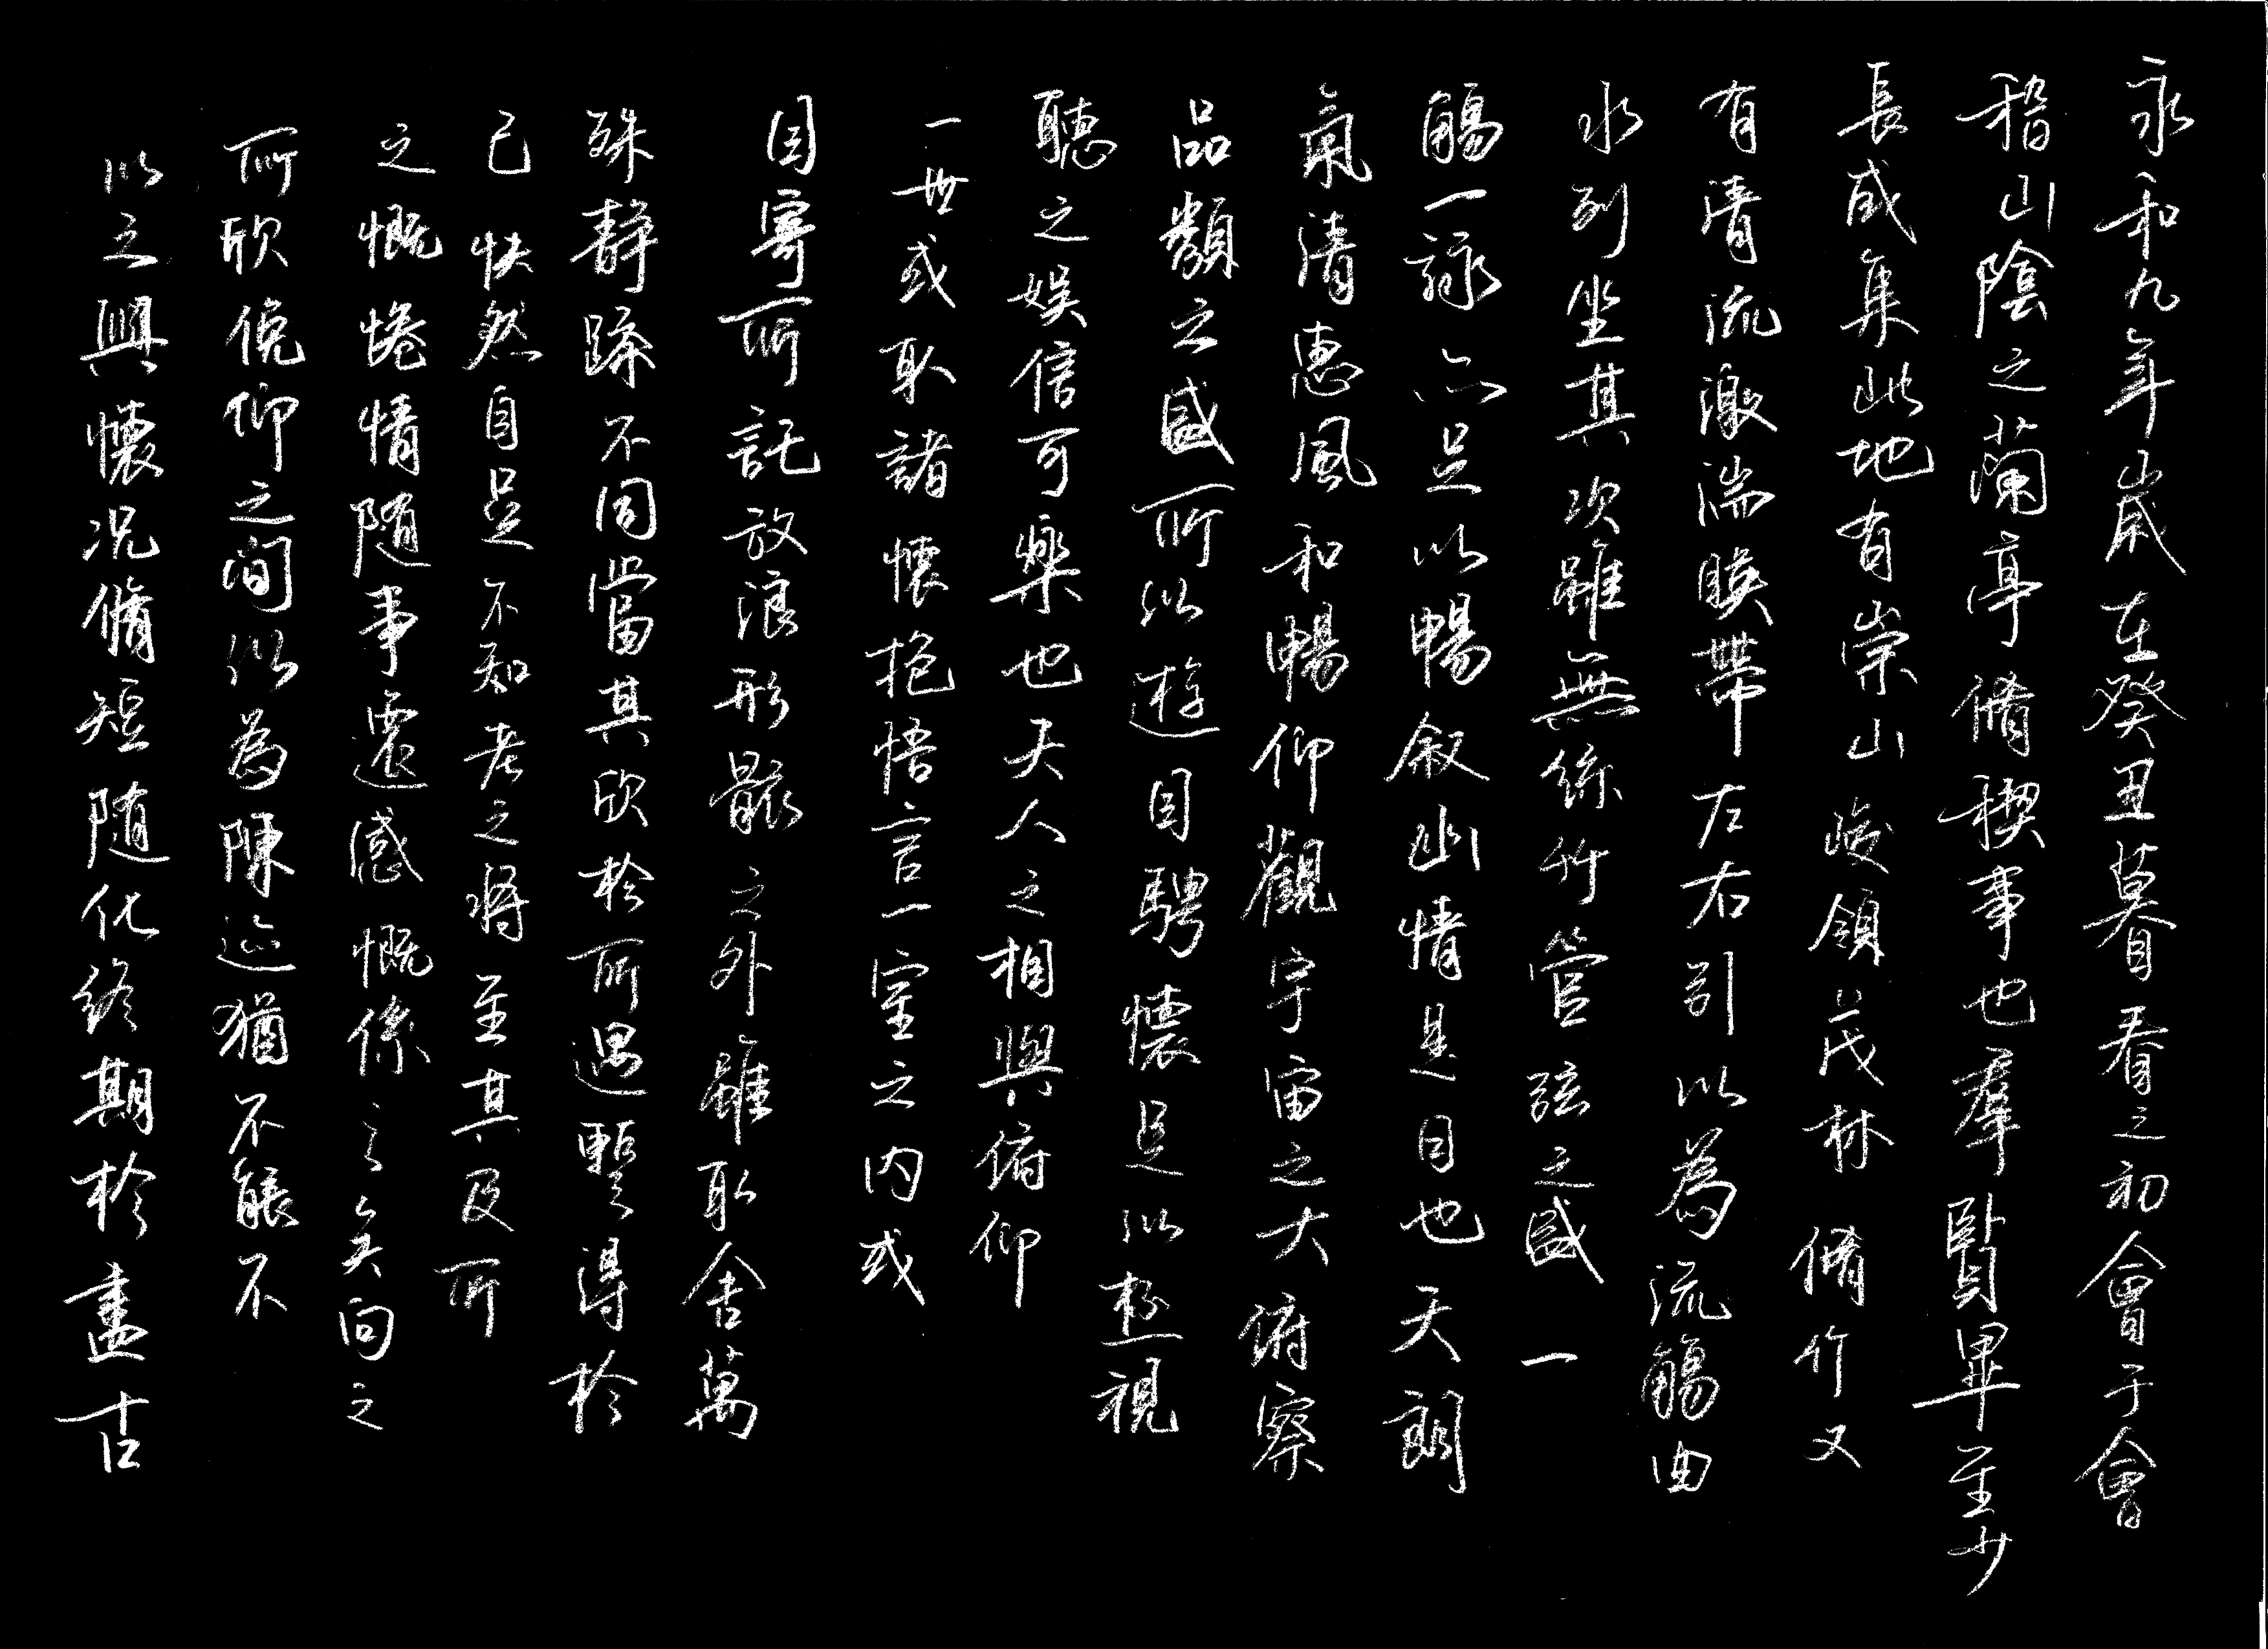 永和九年歲在癸丑暮春之初會于會
稽山陰之蘭亭脩稧事也羣賢畢至少
長咸集此地有崇山峻領茂林脩竹又
有清流激湍暎帶左右引以為流觴曲
水列坐其次雖無絲竹管弦之盛一
觴一詠亦足以暢敘幽情是日也天朗
氣清惠風和暢仰觀宇宙之大俯察
品類之盛所以遊目騁懷足以極視
聽之娛信可樂也夫人之相與俯仰
一世或取諸懷抱悟言一室之內或
因寄所託放浪形骸之外雖取舍萬
殊靜躁不同當其欣於所遇暫得於
己快然自足不知老之將至其及所
之慨惓情随事遷感慨係之矣向之
所欣俛仰之間以為陳迹猶不能不
以之興懷况脩短随化終期於盡古